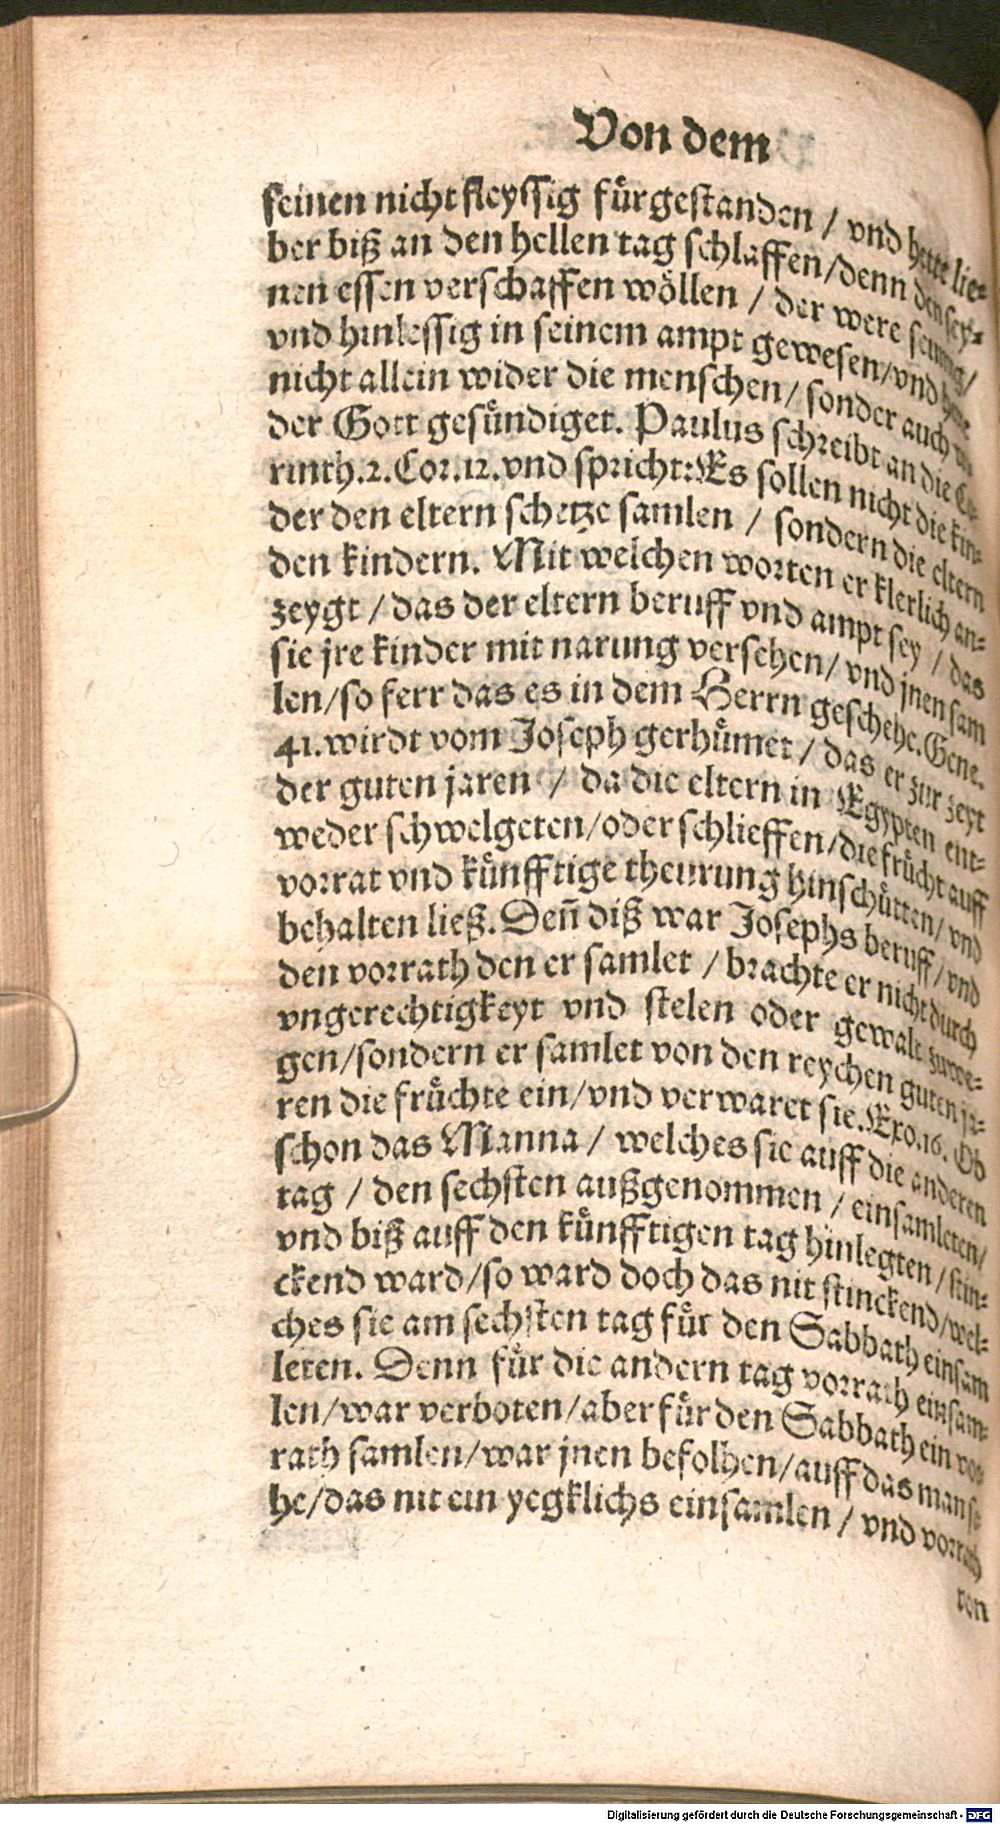 Von dem
seinen nicht fleyssig fürgestanden / vnd hette lie-
ber biß an den hellen tag schlaffen/denn den sey-
nen essen verschaffen wöllen / der were seumig/
vnd hinlessig in seinem ampt gewesen/vnd hette
nicht allein wider die menschen/ sonder auch wi
der Gott gesündiget. Paulus schreibt an die Co-
rinth.2.Cor.12.vnd spricht:Es sollen nicht die kin-
der den eltern schetze samlen / sondern die eltern
den kindern. Mit welchen worten er klerlich an-
zeygt / das der eltern beruff vnd ampt sey / das
sie jre kinder mit narung versehen/ vnd jnen sam
len/so ferr das es in dem Herrn geschehe.Gene.
41.wirdt vom Joseph gerhümet / das er zur zeyt
der guten jaren / da die eltern in Egypten ent-
weder schwelgeten/oder schlieffen/die frücht auff
vorrat vnd künfftige theurung hinschütten/ vnd
behalten ließ.Deñ diß war Josephs beruff/ vnd
den vorrath den er samlet / brachte er nicht durch
vngerechtigkeyt vnd stelen oder gewalt zuwe-
gen/sondern er samlet von den reychen guten ja-
ren die früchte ein/vnd verwaret sie.Exo.16. Ob
schon das Manna / welches sie auff die anderen
tag / den sechsten außgenommen / einsamleten/
vnd biß auff den künfftigen tag hinlegten / stin-
ckend ward/so ward doch das nit stinckend/wel-
ches sie am sechsten tag für den Sabbath einsam
leten. Denn für die andern tag vorrath einsam-
len/war verboten/aber für den Sabbath ein vor
rath samlen/war jnen befolhen/auff das man se
he/das nit ein yegklichs einsamlen / vnd vorrath
von
Digitalisierung gefördert durch die Deutsche Forschungsgemeinschaft - DFG